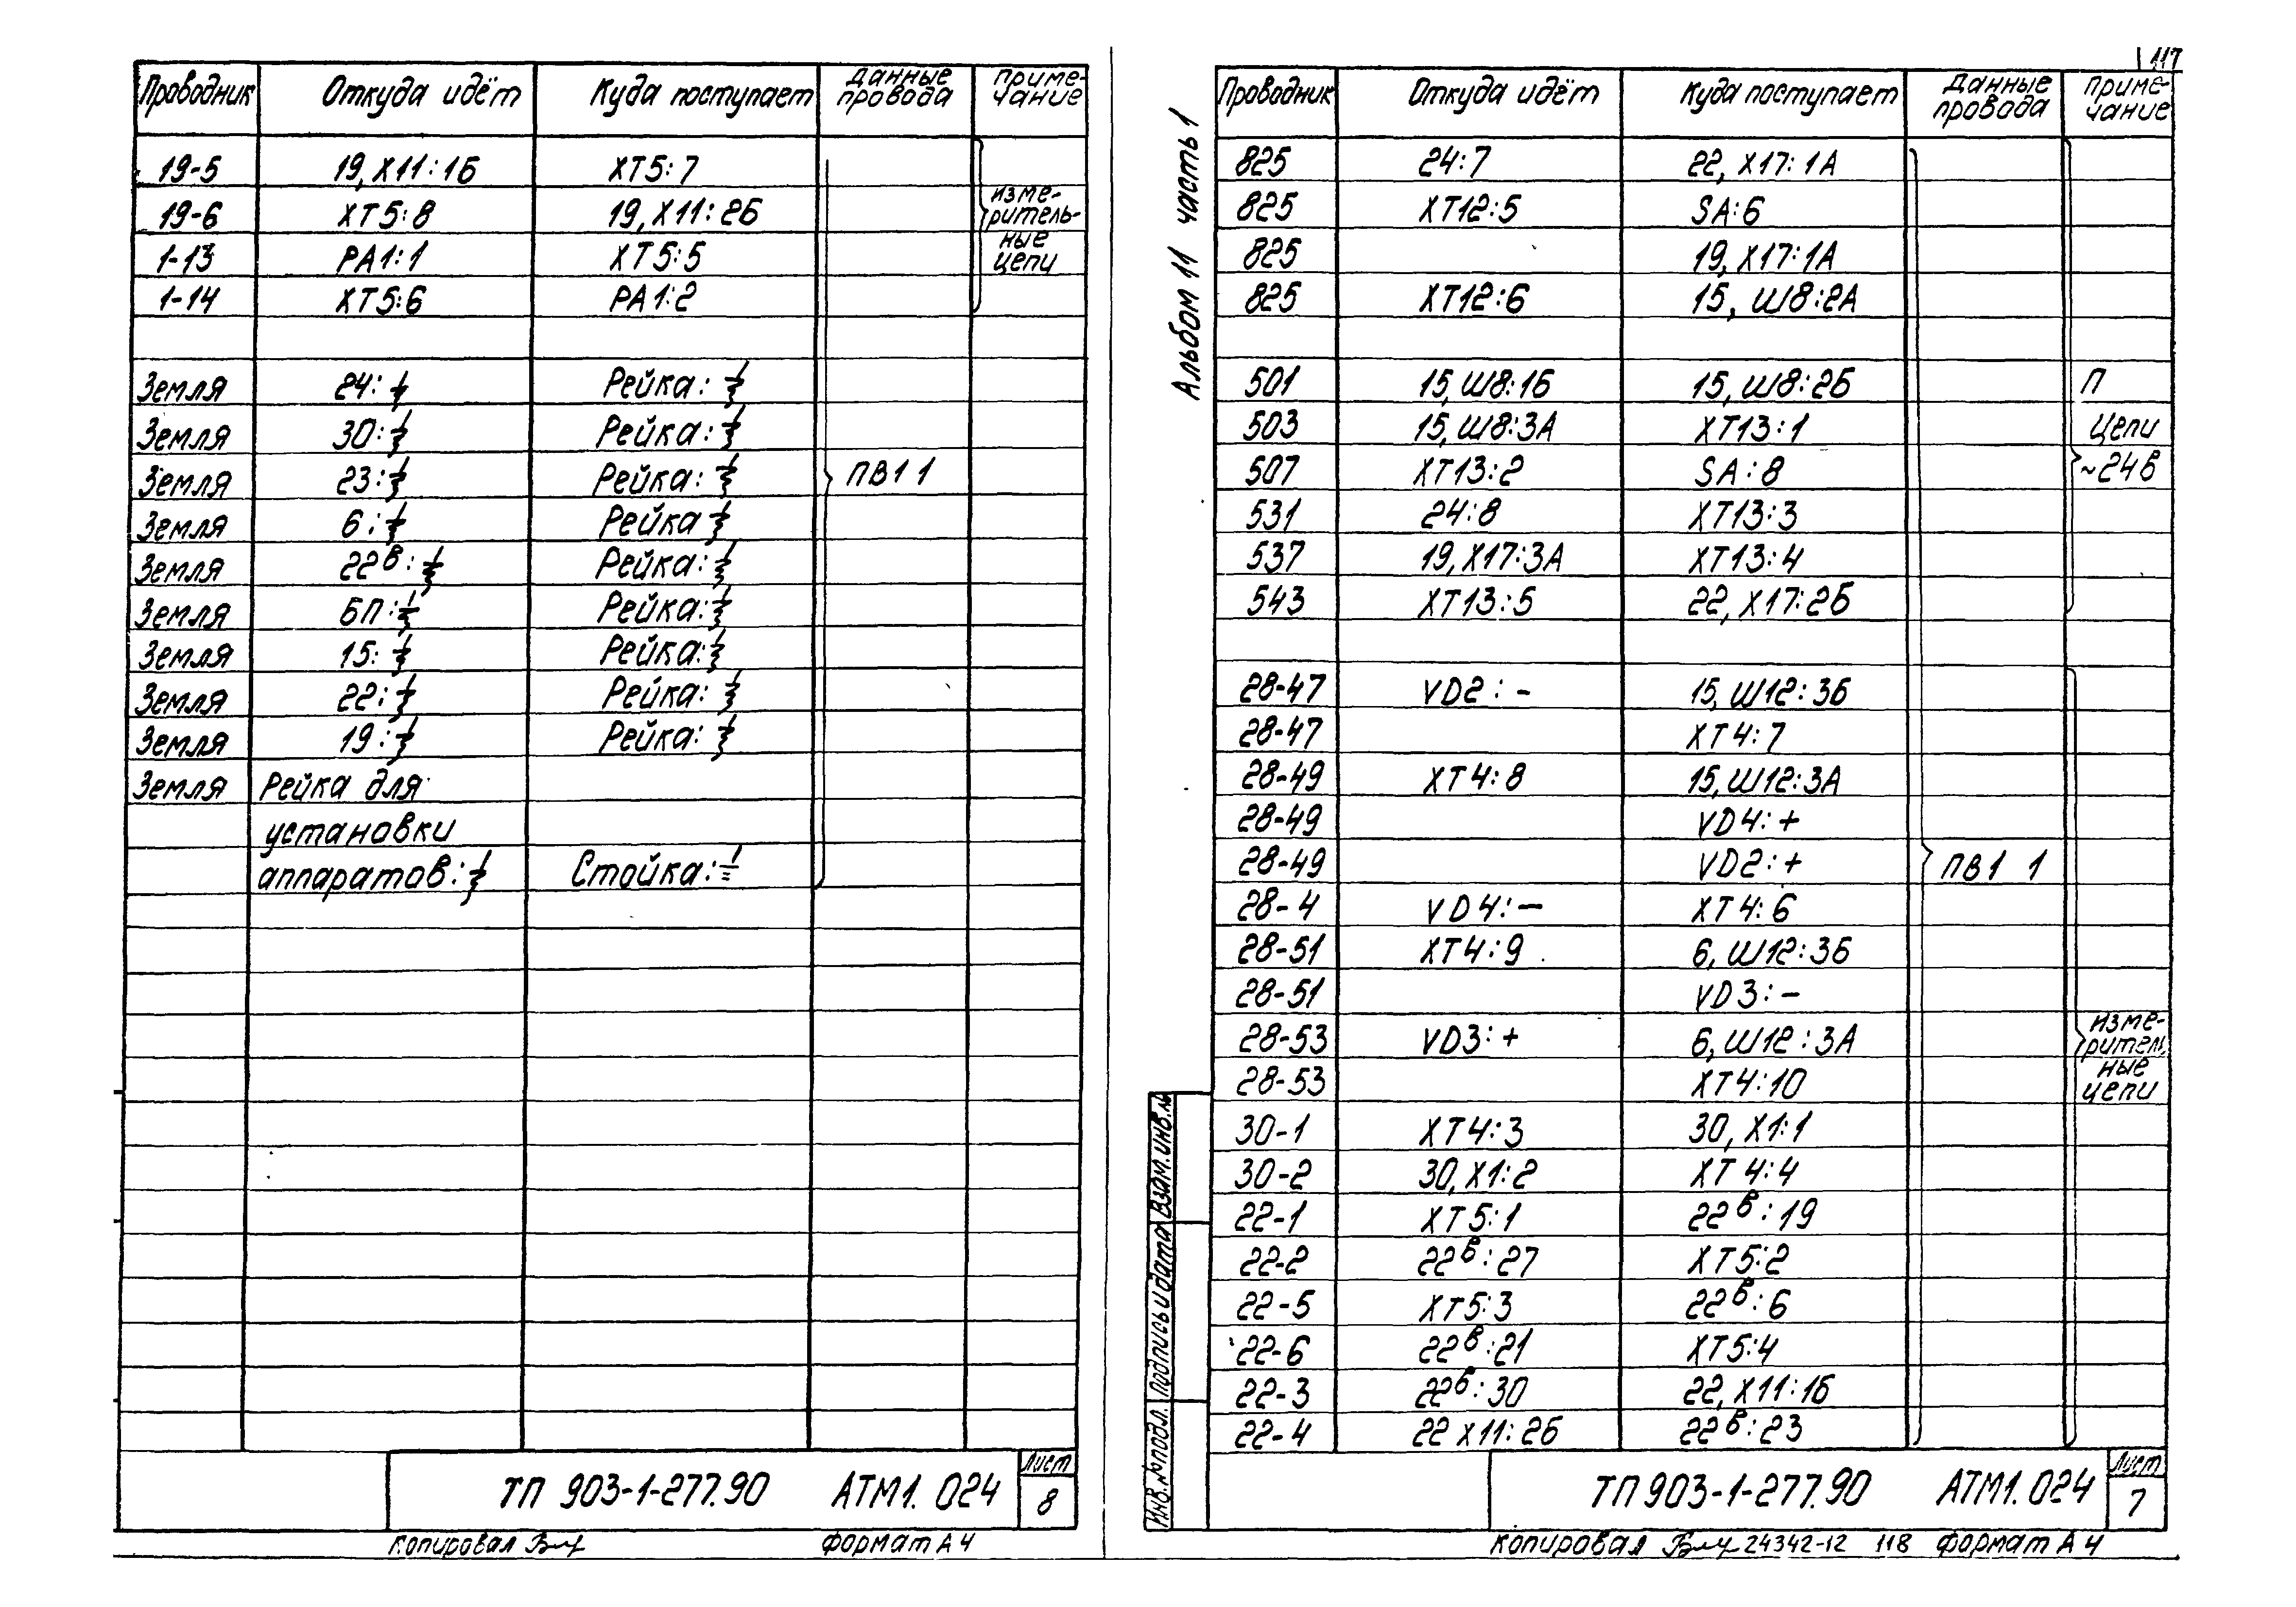 Проводник Откуда идёт Куда поступает Данные провода Приме-чание
19-5 19, Х11:1Б ХТ5:7
19-6 ХТ5:8 19, Х11:2Б
1-13 РА1:1 ХТ5:5
1-14 ХТ5:6 РА1:2
изме-
ритель-
ные
цепи
Земля 24: Рейка:
Земля 30: Рейка:
Земля 23: Рейка: ПВ1 1
Земля 6: Рейка
Земля 22В: Рейка:
Земля БП: Рейка:
Земля 15: Рейка:
Земля 22: Рейка:
Земля 19: Рейка:
Земля Рейка для
установки
аппаратов: Стойка:
ТП 903-1-277.90 АТМ1. 024
Лист
8
Копировал Формат А4
117
Альбом 11 часть 1
Проводник Откуда идёт Куда поступает Данные провода Приме-чание
825 24:7 22, Х17:1А
825 ХТ12:5 SA:6
825 19, Х17:1А
825 ХТ12:6 15, Ш8:2А
501 15, Ш8:1Б 15, Ш8:2Б П
503 15, Ш8:3А ХТ13:1 Цепи
507 ХТ13:2 SA:8 ~24В
531 24:8 ХТ13:3
537 19, Х17:3А ХТ13:4
543 ХТ13:5 22, Х17:2Б
28-47 VD2:- 15, Ш12:3Б
28-47 ХТ4:7
28-49 ХТ4:8 15, Ш12:3А
28-49 VD4:+
28-49 VD2:+ ПВ1 1
28-4 VD4:- ХТ4:6
28-51 ХТ4:9 6, Ш12:3Б
28-51 VD3:-
28-53 VD3:+ 6, Ш12:3А
28-53 ХТ4:10
изме-
ритель-
ные
цепи
30-1 ХТ4:3 30, Х1:1
30-2 30, Х1:2 ХТ4:4
22-1 ХТ5:1 22В:19
22-2 22В:27 ХТ5:2
22-5 ХТ5:3 22В:6
22-6 22В:21 ХТ5:4
22-3 22В:30 22, Х11:1Б
22-4 22 Х11:2Б 22В:23
Взам. инв. №
Подпись и дата
Инв. № подл.
ТП 903-1-277.90 АТМ1. 024
Лист
7
Копировал 24342-12 118 Формат А4